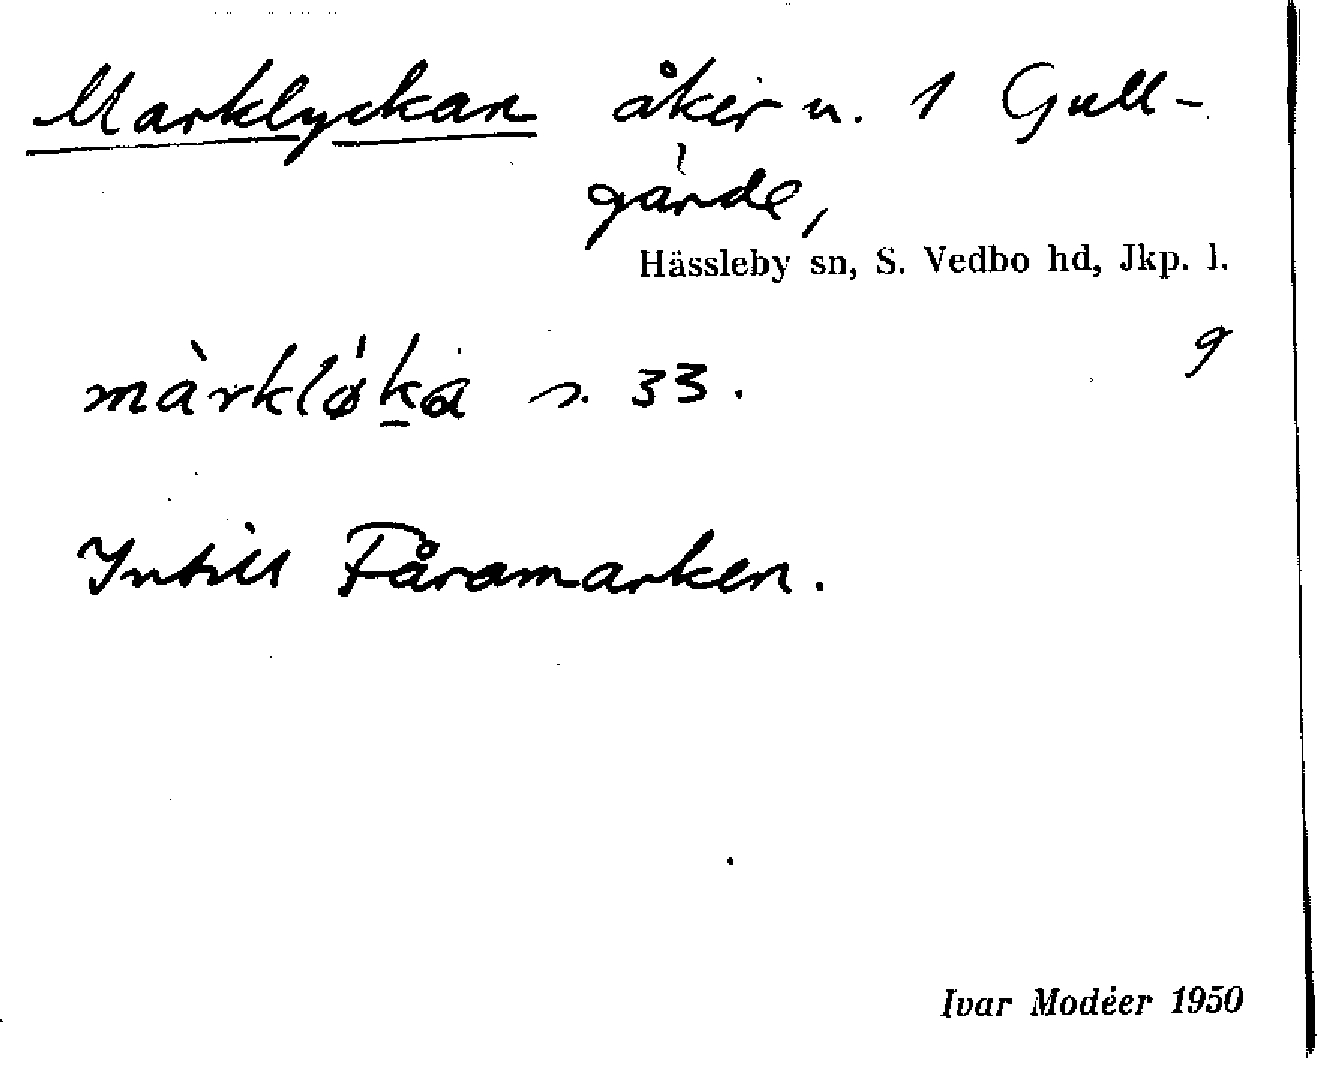 Marklyckan åker n. 1 Gull-
gärde,
Hässleby sn, S. Vedbo hd, Jkp. l.
9
màrklø̍ka n. 33.
Intill Fåramarken.
Ivar Modéer 1950